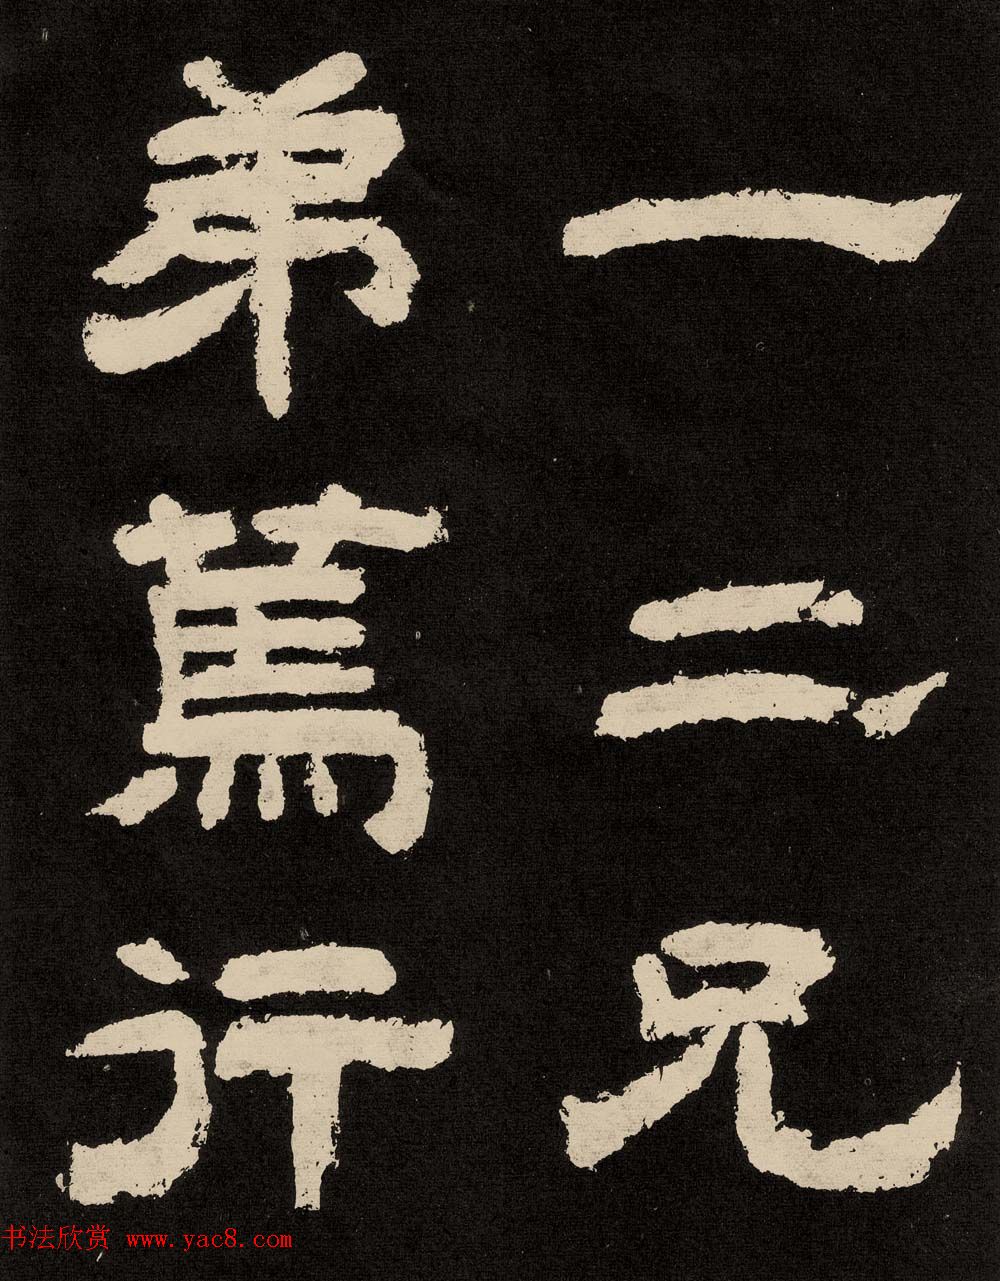 一二兄
弟篤行
书法欣赏 www.yac8.com